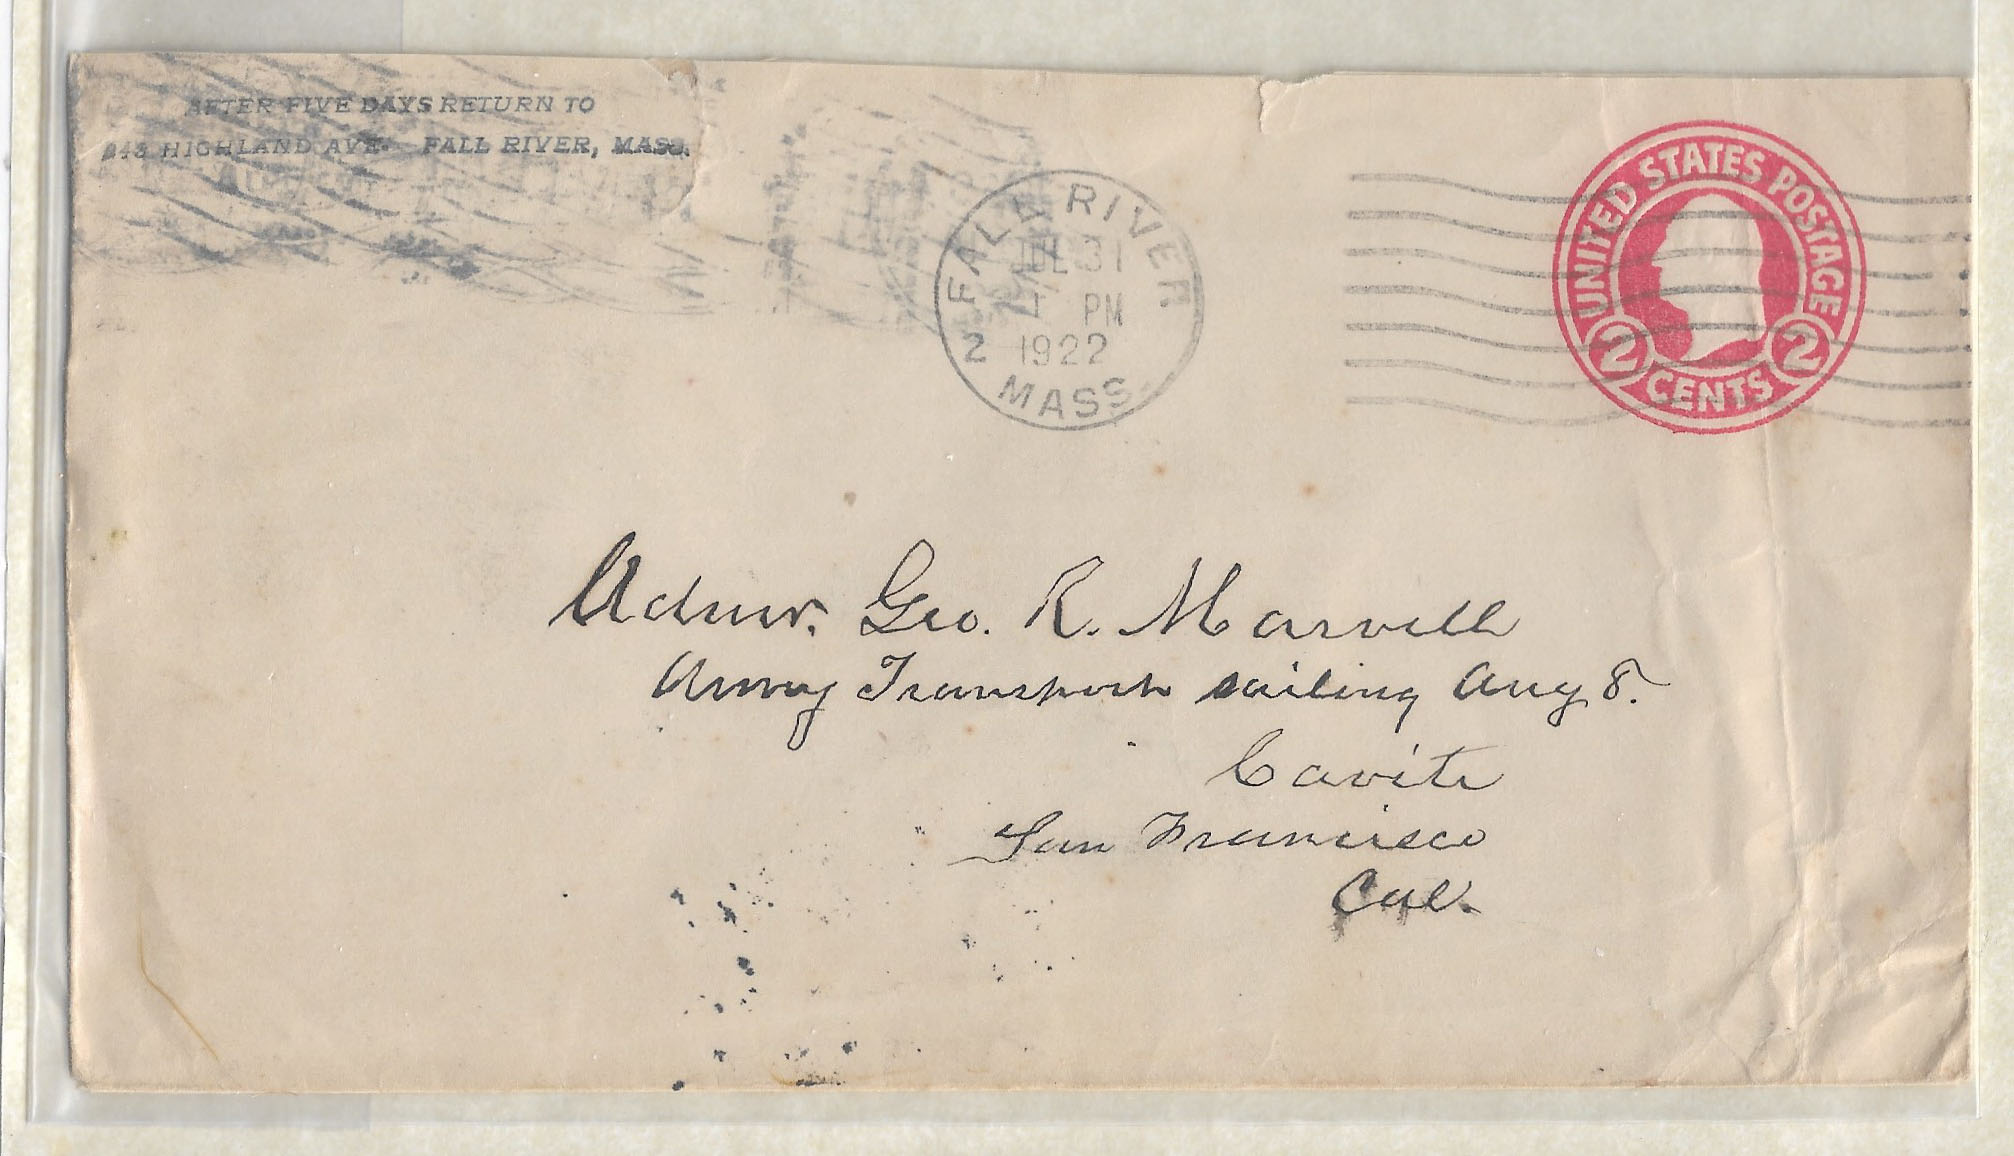 AFTER FIVE DAYS RETURN TO
HIGHLAND AVE. FALL RIVER, MASS.
FALL RIVER
JUL 31
1 PM
1922
2
MASS.
UNITED STATES POSTAGE
2 CENTS 2
Admr. Geo. R. Marvell
Army Transport sailing Aug 8.
Cavite
San Francisco
Cal.